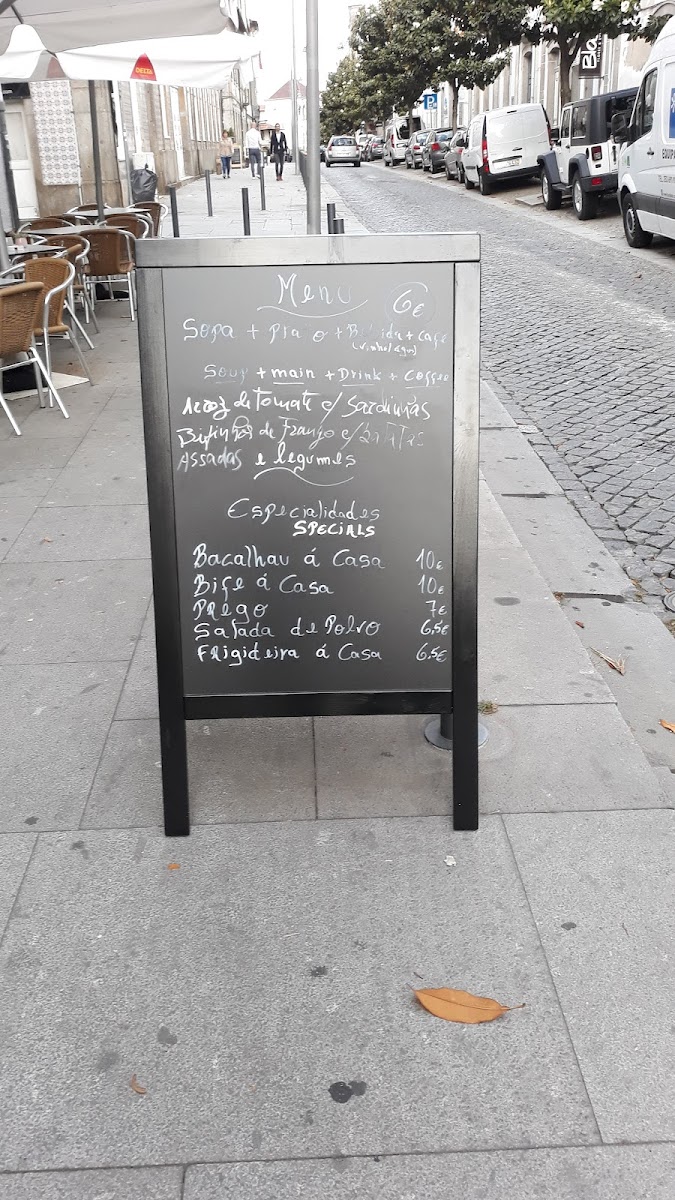 DELTA
P
Menu 6€
Sopa + prato + Bebida + café
(vinho/água)
Soup + main + Drink + Coffee
Arroz de Tomate c/ Sardinhas
Bifinhos de Frango c/ Batatas
Assadas e legumes
Especialidades
SPECIALS
Bacalhau á Casa 10€
Bife á Casa 10€
Prego 7€
Salada de Polvo 6,5€
Frigideira á Casa 6,5€